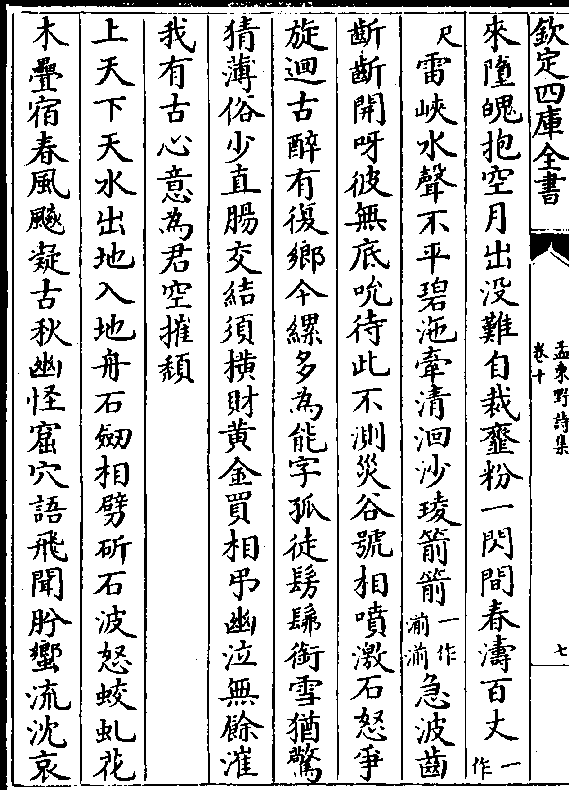 欽定四庫全書
孟東野詩集
卷十
七
來墮魄抱空月出没難自裁虀粉一閃間春濤百丈一作
尺雷峽水聲不平碧沲牽清洄沙稜箭箭一作湔湔急波齒
齗齗開呀彼無底吮待此不測災谷號相噴激石怒爭
旋迴古醉有復鄉今縲多為能字孤徒髣髴銜雪猶驚
猜薄俗少直腸交結須横財黄金買相弔幽泣無餘漼
我有古心意為君空摧頽
上天下天水出地入地舟石劒相劈斫石波怒蛟虬花
木疊宿春風飈凝古秋幽怪窟穴語飛聞肹蠁流沈哀